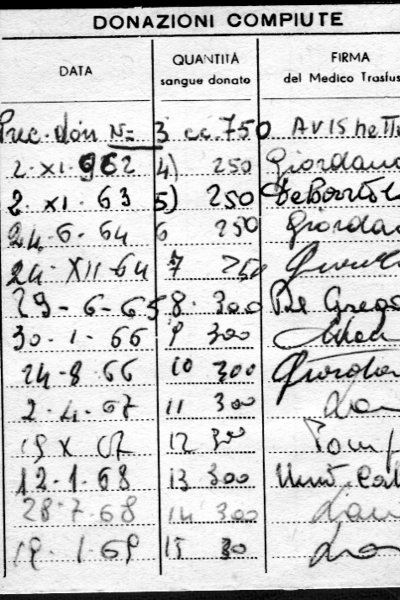 DONAZIONI COMPIUTE
DATA QUANTITÀ sangue donato FIRMA del Medico Trasfus
Prec. don N= 3 cc. 750 AVIS
2. XI. 962 4) 250 Giordano
2. XI. 63 5) 250 De Bortol
24. 6 - 64 6 250 Giordan
24. XII - 64 7 250
29 - 6 - 65 8. 300 De Grego
30 - 1 - 66 9 300
24 - 8. 66 10 300 Giordan
2 - 4. 67 11 300
15 X 67 12 300
12. 1. 68 13 300
28. 7. 68 14 300
19. 1. 69 15 30